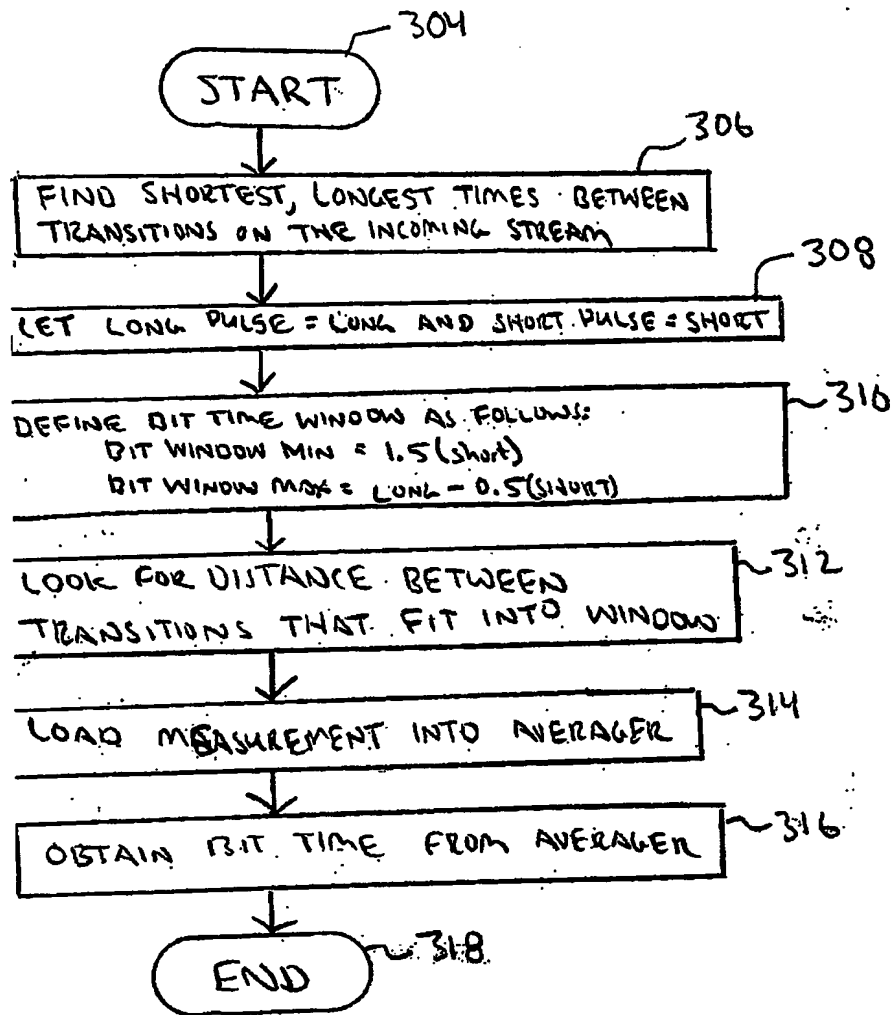 304
START
306
FIND SHORTEST, LONGEST TIMES BETWEEN
TRANSITIONS ON THE INCOMING STREAM
308
LET LONG PULSE = LONG AND SHORT PULSE = SHORT
310
DEFINE BIT TIME WINDOW AS FOLLOWS:
BIT WINDOW MIN = 1.5(short)
BIT WINDOW MAX = LONG - 0.5(SHORT)
312
LOOK FOR DISTANCE BETWEEN
TRANSITIONS THAT FIT INTO WINDOW
314
LOAD MEASUREMENT INTO AVERAGER
316
OBTAIN BIT TIME FROM AVERAGER
318
END